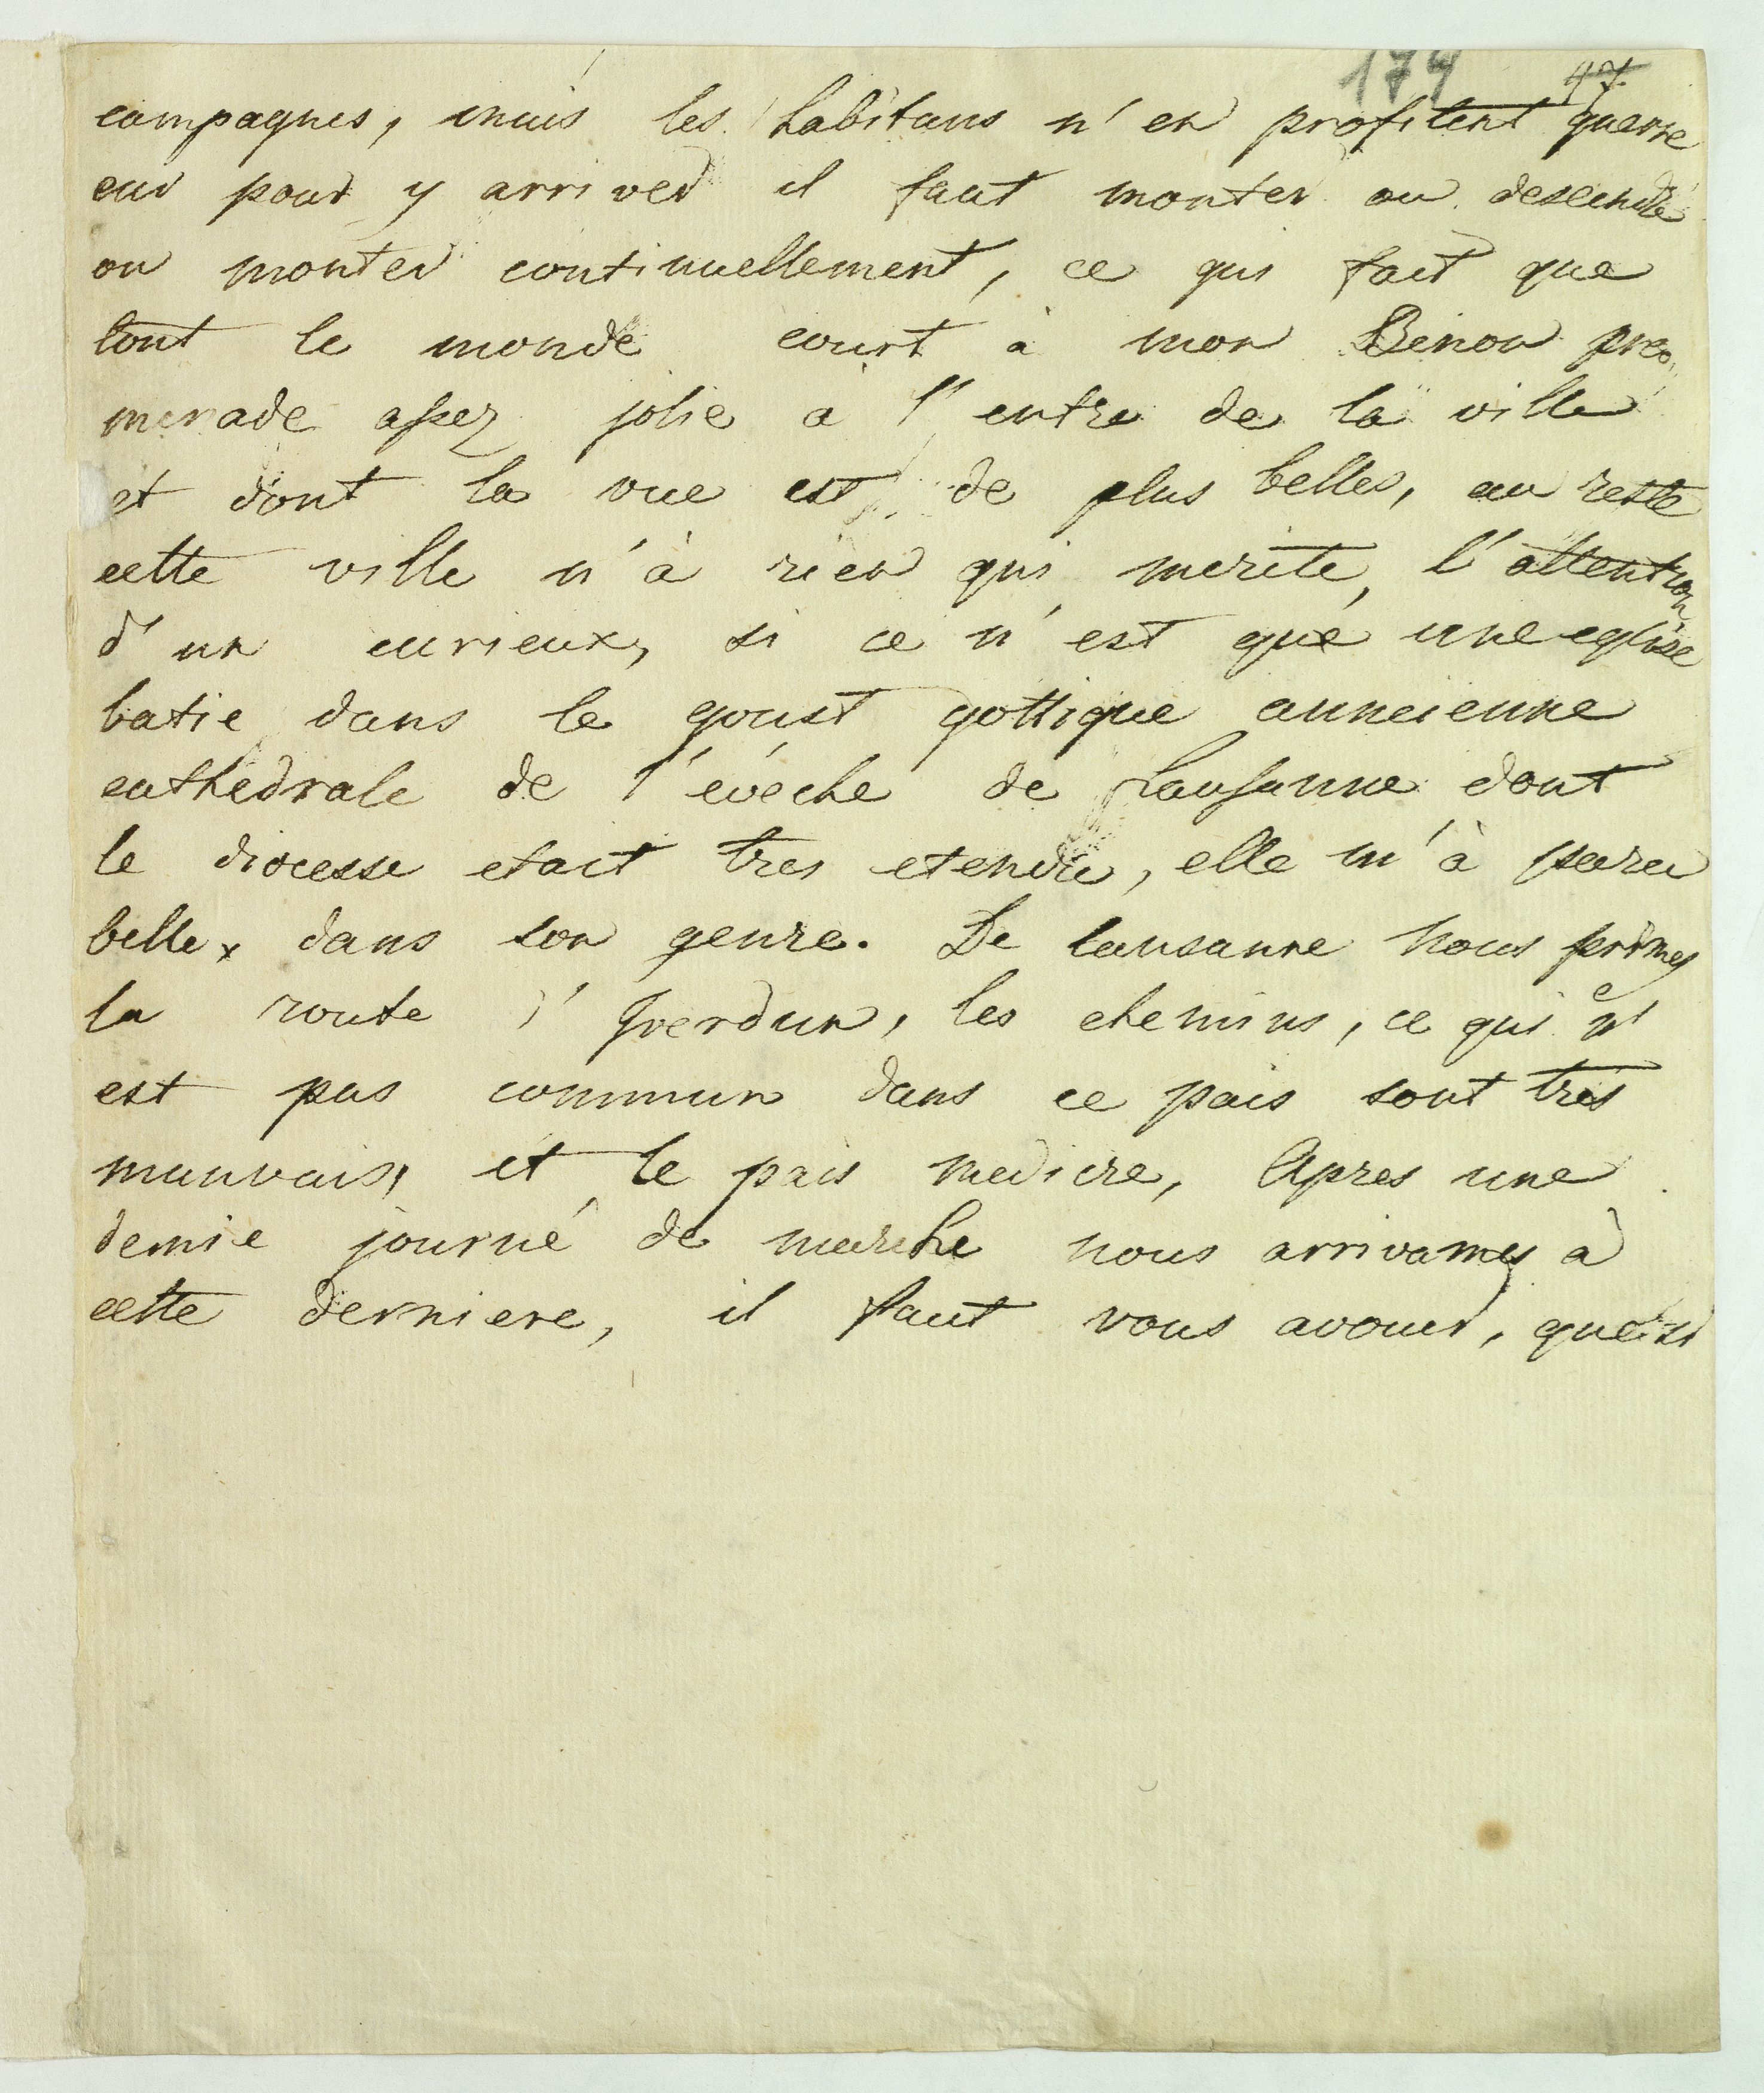 174 47.
campagnes, mais les habitans n'en profitent guerre
car pour y arriver il faut monter ou descendre
ou monter continuellement, ce qui fait que
tout le monde court à mon Benon pro„
menade assez jolie a l'entre de la ville
et dont la vue est de plus belles, au reste
cette ville n'à rien qui merite, l'attention
d'un curieux, si ce n'est que une eglise
batie dans le goust gottique anncienne
cathedrale de l'evéche de Lausanne dont
le diocesse etait tres etendu, elle m'à paru
belle, dans son genre. De lausanne nous primes
la route d'Yverdun, les chemins, ce qui n'
est pas commun dans ce pais sont tres
mauvais, et le pais medicre, Apres une
demie journé de marche nous arrivames à
cette derniere, il faut vous avouer,